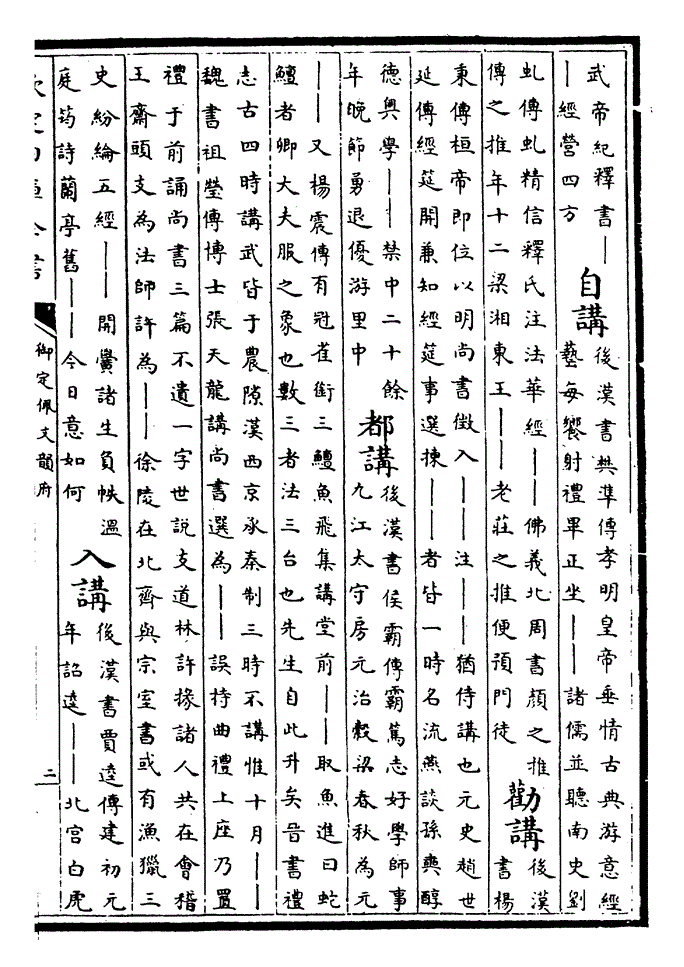 武帝紀釋書｜
｜經營四方
自講
後漢書樊準傳孝明皇帝垂情古典游意經
藝每饗射禮畢正坐｜｜諸儒並聽南史劉
虬傳虬精信釋氏注法華經｜｜佛義北周書顔之推
傳之推年十二梁湘東王｜｜老莊之推便預門徒
勸講
後漢
書楊
秉傳桓帝即位以明尚書徵入｜｜注｜｜猶侍講也元史趙世
延傳經筵開兼知經筵事選揀｜｜｜｜者皆一時名流燕談孫奭醇
德奧學｜｜禁中二十餘
年晚節勇退優游里中
都講
後漢書侯霸傳霸篤志好學師事
九江太守房元治穀梁春秋為元
｜｜又楊震傳有冠雀銜三鱣魚飛集講堂前｜｜取魚進曰蛇
鱣者卿大夫服之象也數三者法三台也先生自此升矣晉書禮
志古四時講武皆于農隙漢西京承秦制三時不講惟十月｜｜
魏書祖瑩傳博士張天龍講尚書選為｜｜誤持曲禮上座乃置
禮于前誦尚書三篇不遺一字世說支道林許掾諸人共在會稽
王齋頭支為法師許為｜｜徐陵在北齊與宗室書或有漁獵三
史紛綸五經｜｜開黌諸生負帙溫
庭筠詩蘭亭舊｜｜今日意如何
入講
後漢書賈逵傳建初元
年詔逵｜｜北宮白虎
欽定四庫全書
御定佩文韻府
二